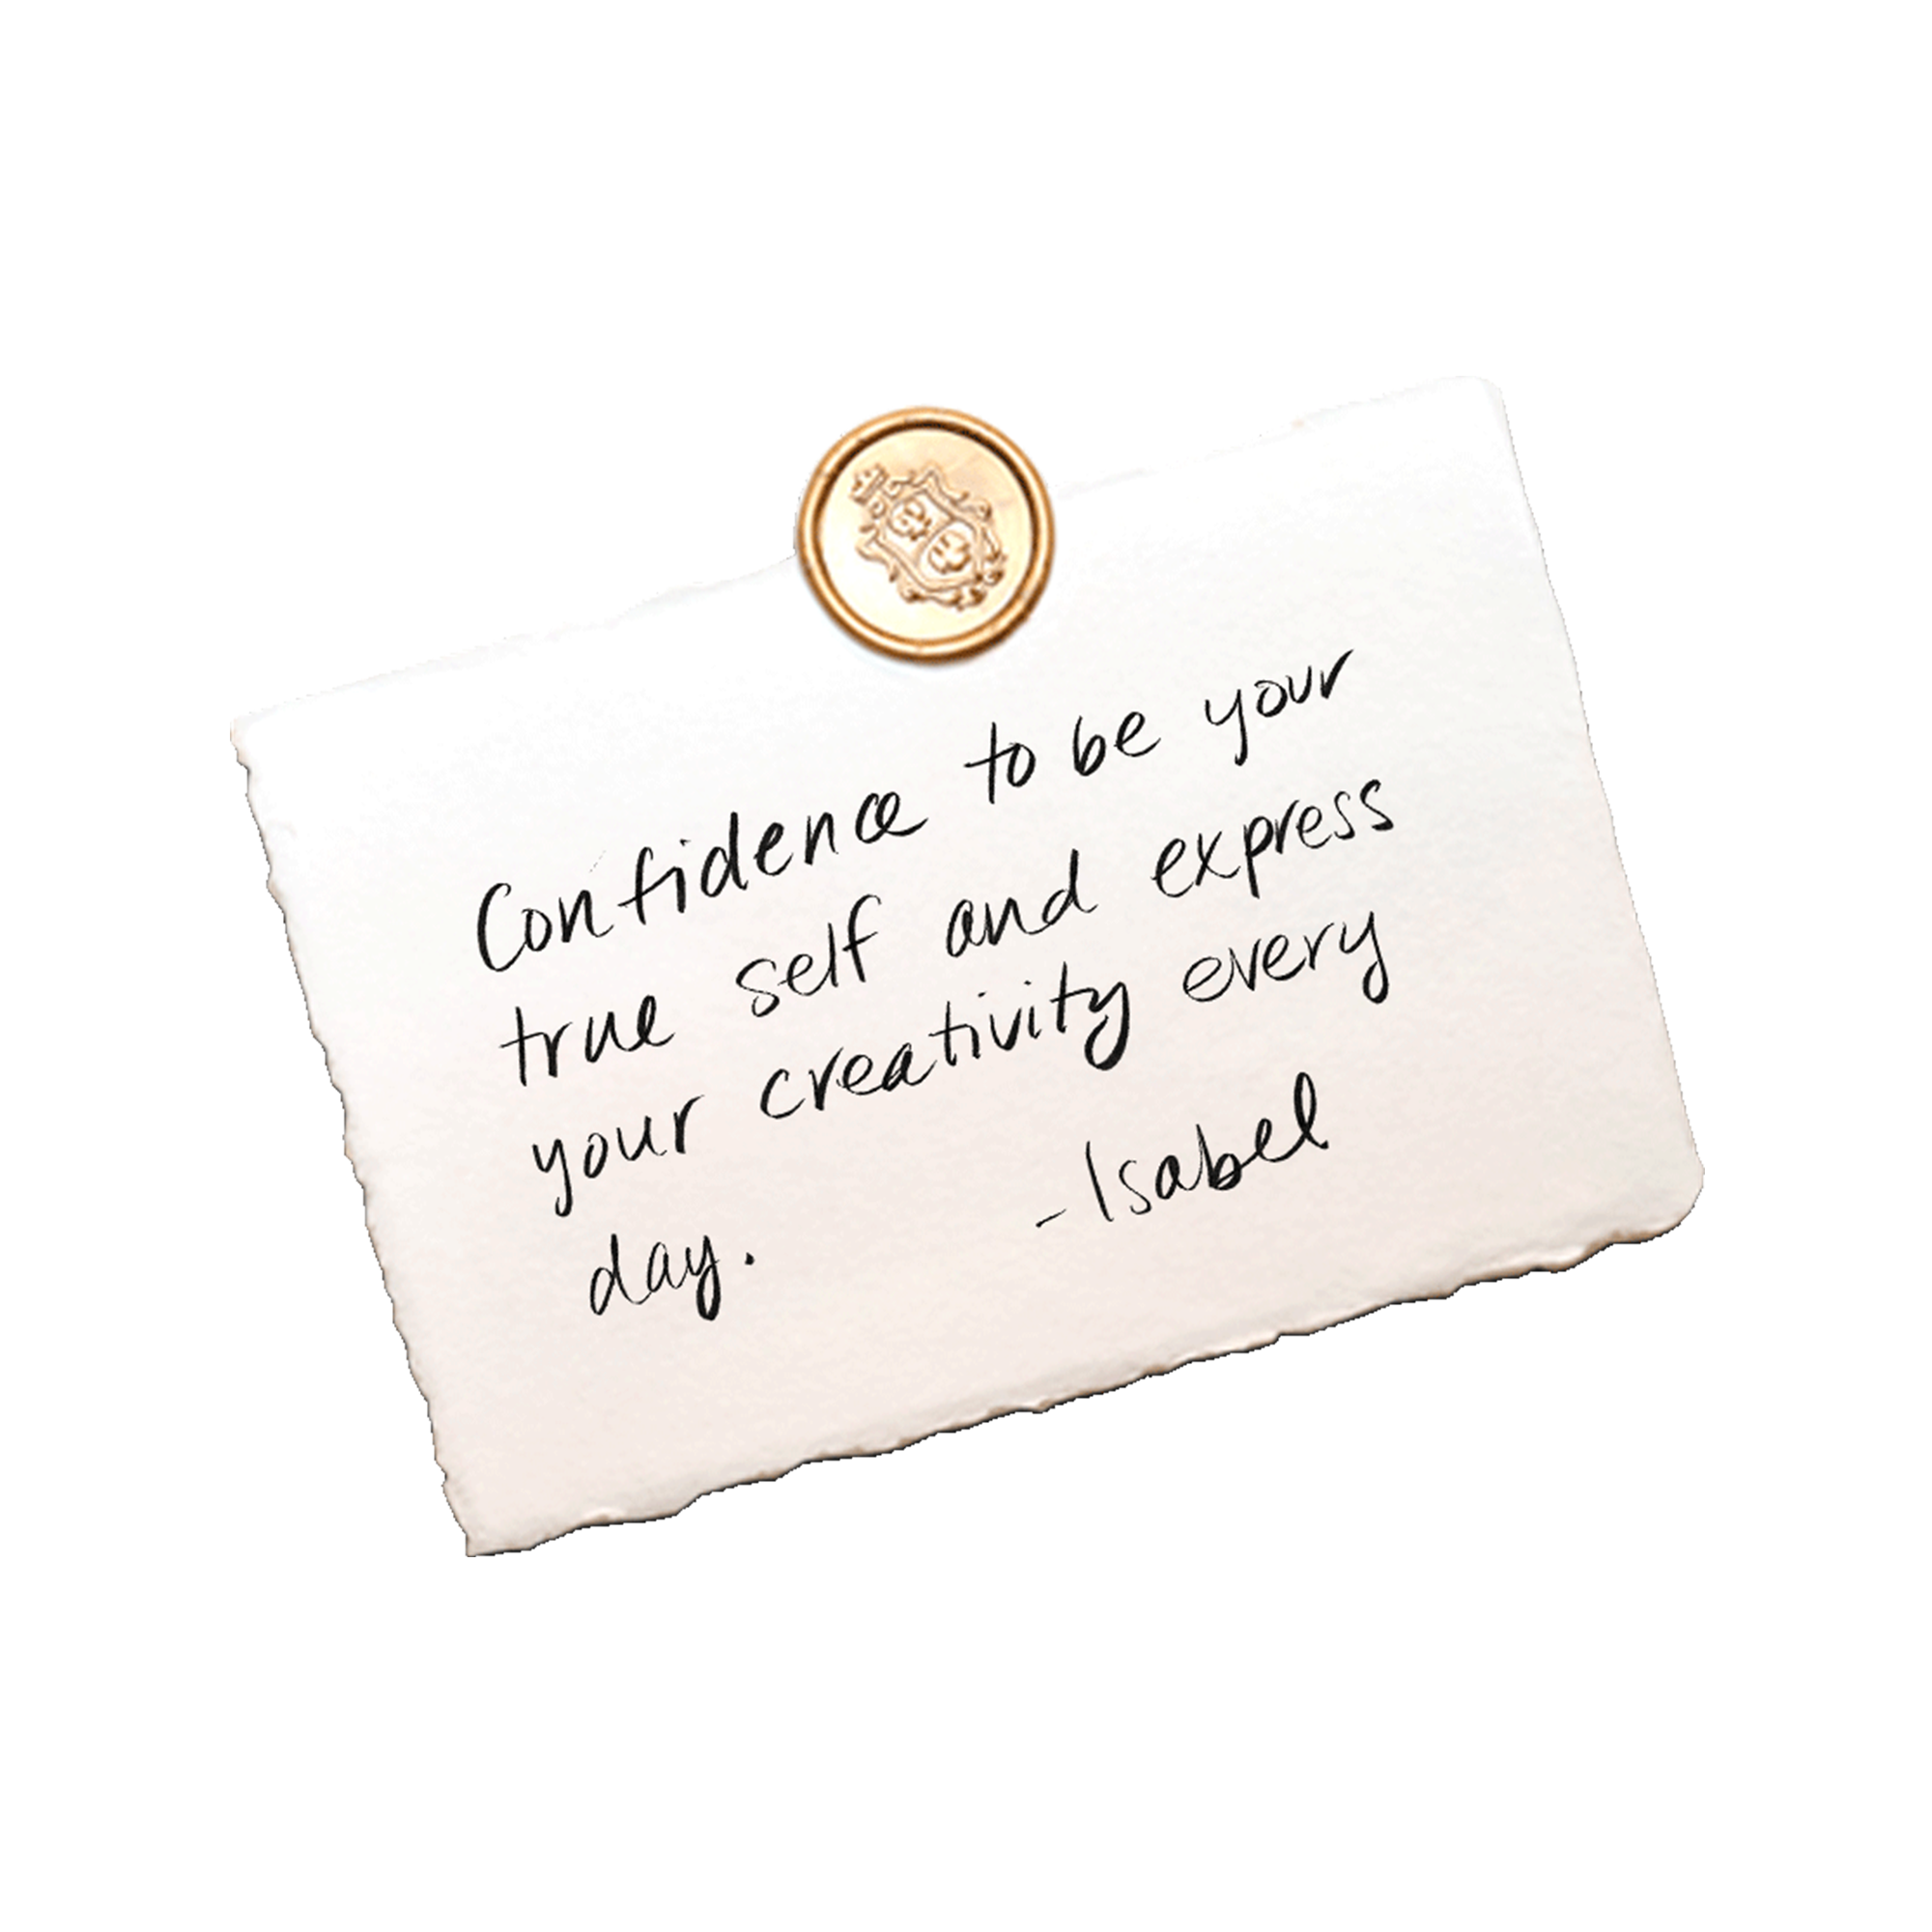 Confidence to be your
true self and express
your creativity every
day.
-Isabel